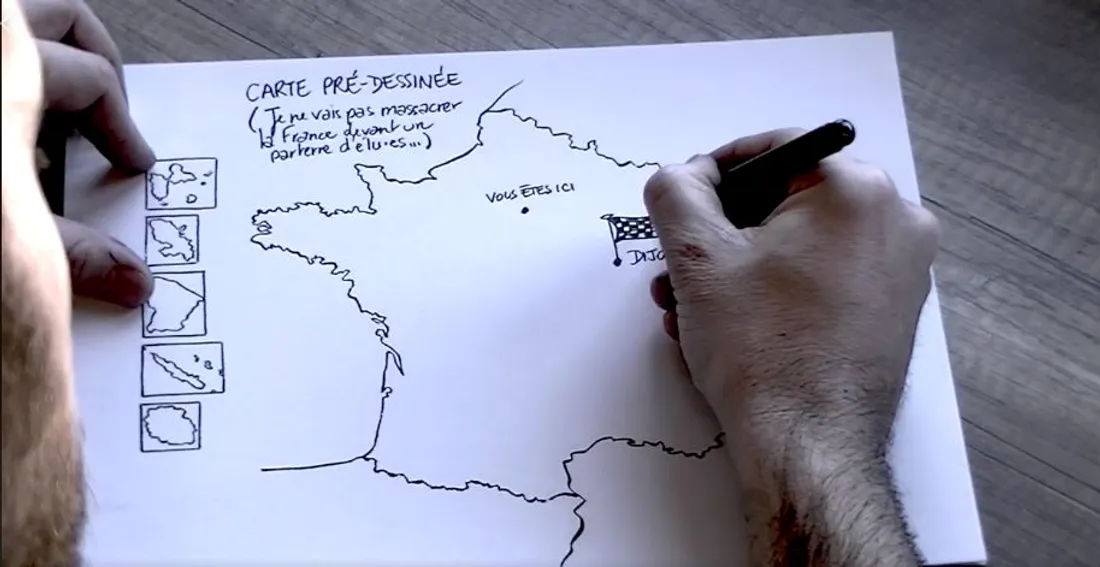 CARTE PRÉ-DESSINÉE
(Je ne vais pas massacrer
la France devant un
parterre d'élu·es...)
VOUS ÊTES ICI
DIJO